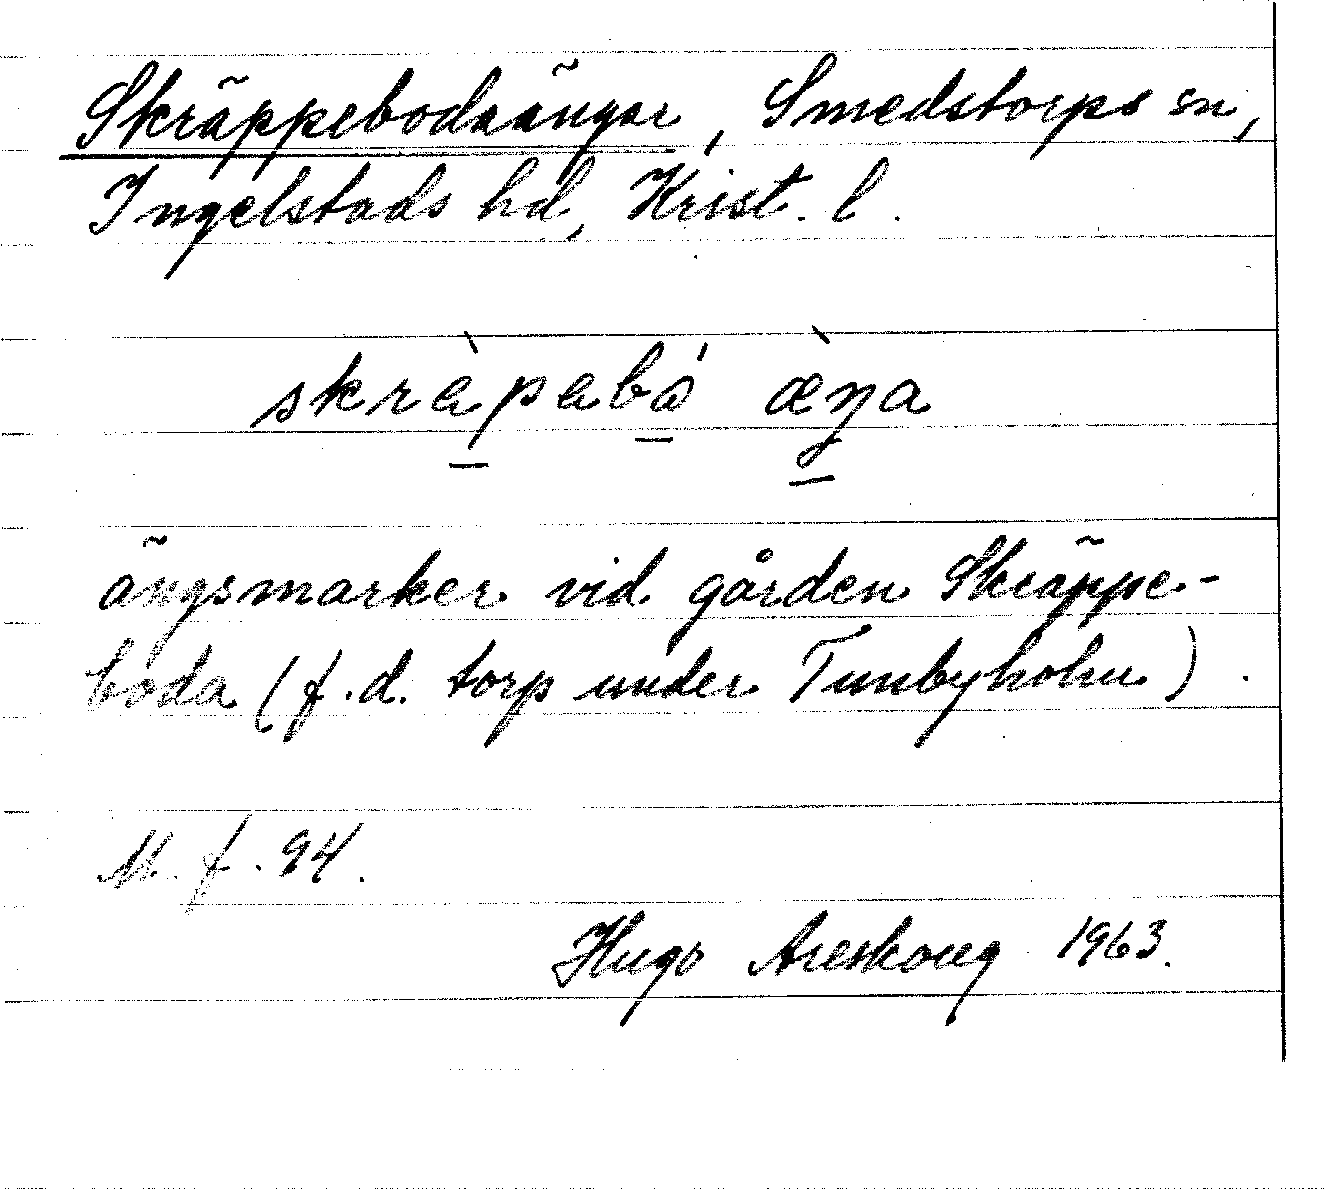 Skräppebodaängar, Smedstorps sn,
Ingelstads hd, Krist. l.
skràpabó æŋa
ängsmarker vid gården Skräppe-
boda (f.d. torp under Tunbyholm).
M. f. 94.
Hugo Areskoug 1963.